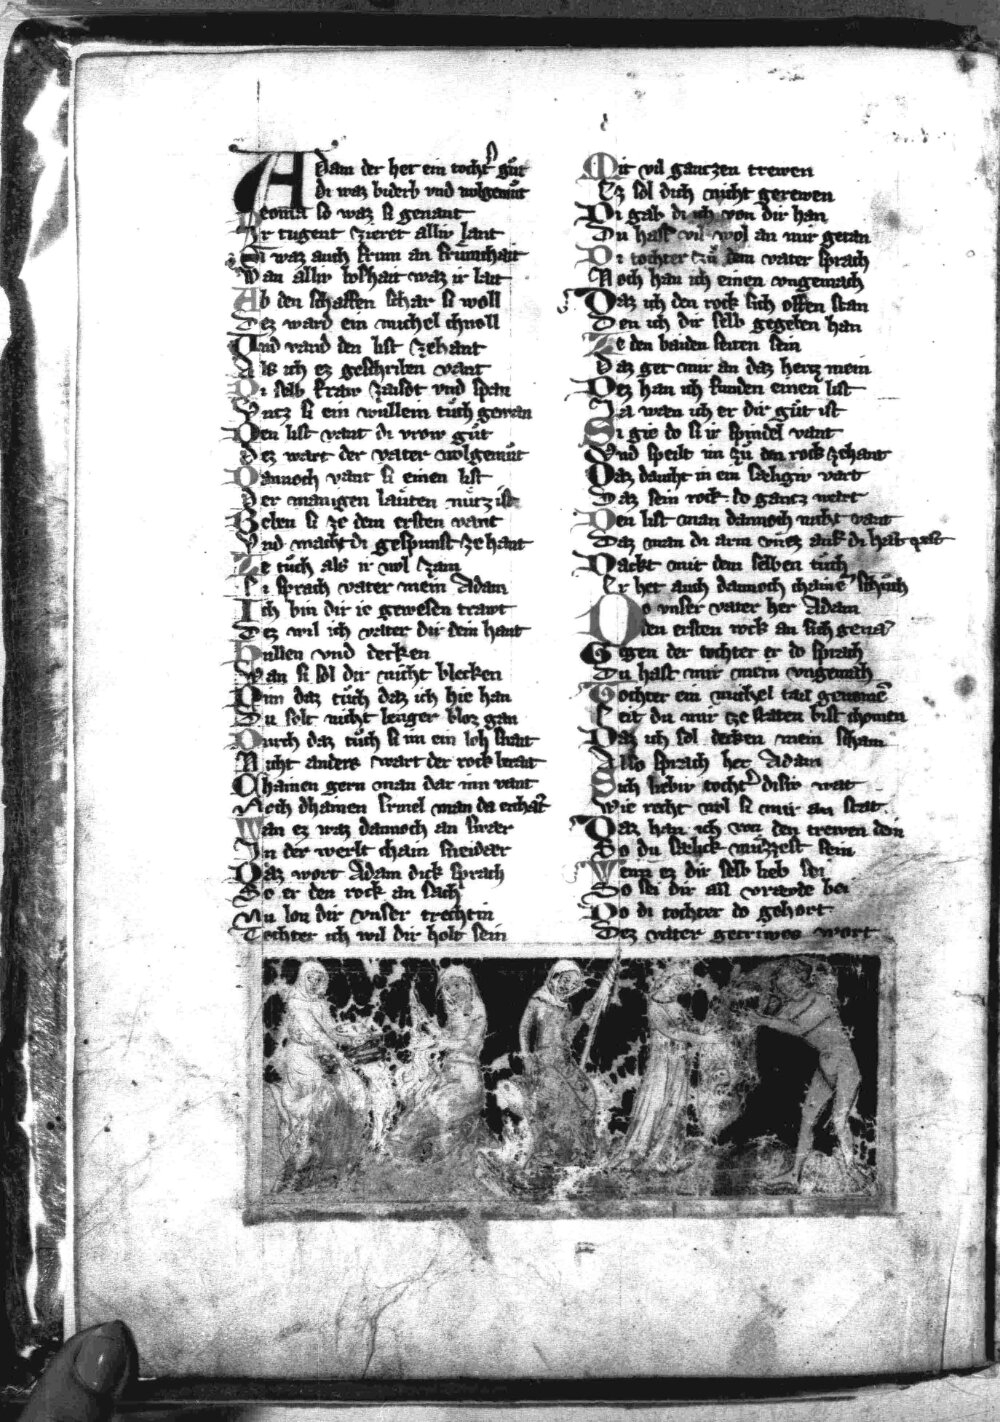 Adam der het ein tocht͛ guͤt
di waz biderb vnd wolgemuͤt
Leonia so waz si genant
Ir tugent zieret alliv lant
Si waz auch frum an frumchait
Wan alliv boshait waz ir lait
Ab den schaffen schar si woll
Dez ward ein michel chnoll
Vnd vand den list zehant
Als ich ez geschriben vant
Di selb fraw zaisot vnd span
Vntz si ein wullein tuͤch gewan
Den list vant di vrow guͤt
Dez wart der vater wolgemuͤt
Dannoch vant si einen list
Der manigen laͤuten nuͤtz ist
Geben si ze dem ersten vant
Vnd macht di gespunst zehant
Ze tuͤch als ir wol zam
Si sprach vater mein Adam
Ich bin dir ie gewesen trawt
Dez wil ich vater dir dein haut
Hullen vnd decken
Wan si sol dir nicht blecken
Nim daz tuͤch daz ich hie han
Du solt nicht lenger bloz gan
Durch daz tuͤch si im ein loh snait
Nicht anders wart der rock brait
Chainen gern man dar inn vant
Noch dhainen ermel man da erchant
Wan ez waz dannoch an swær
In der werlt chain sneidær
Daz wort Adam dick sprach
Do er den rock an sach
Nu lon dir vnser trechtin
Tochter ich wil dir holt sein
Mit vil gantzen trewen
Ez sol dich nicht gerewen
Di gab di ich von dir han
Du hast vil wol an mir getan
Di tochter tzuͤ dem vater sprach
Noch han ich einen vngemach
Daz ich den rock sich offen stan
Den ich dir selb gegeben han
Ze den baiden seiten sein
Daz get mir an daz hertz mein
Dez han ich funden einen list
Ja wæn ich er dir guͤt ist
Si gie do si ir spindel vant
Vnd speilt im zuͤ den rock zehant
Daz daucht in ein sæligiv vart
Daz sein rock do gantz wart
Den list man dannoch nicht vant
Daz man di arm
Dackt mit dem selben tuͤch
Er het auch dannoch chainē schuͤch
Do vnser vater her Adam
den ersten rock an sich genā
Gegen der tochter er do sprach
Du hast mir mein vngemach
Tochter ein michel tail genomē
Seit du mir tze staten bist chomen
Daz ich sol decken mein scham
Also sprach her Adam
Sich liebiv tocht͛ disiv wat
Wie recht wol si mir an stat
Daz han ich von den trewen dein
So du sælick muͤzzest sein
Wenn ez dir selb lieb sei
So sei dir all vræude bei
Do di tochter do gehort
Dez vater getriwes wort